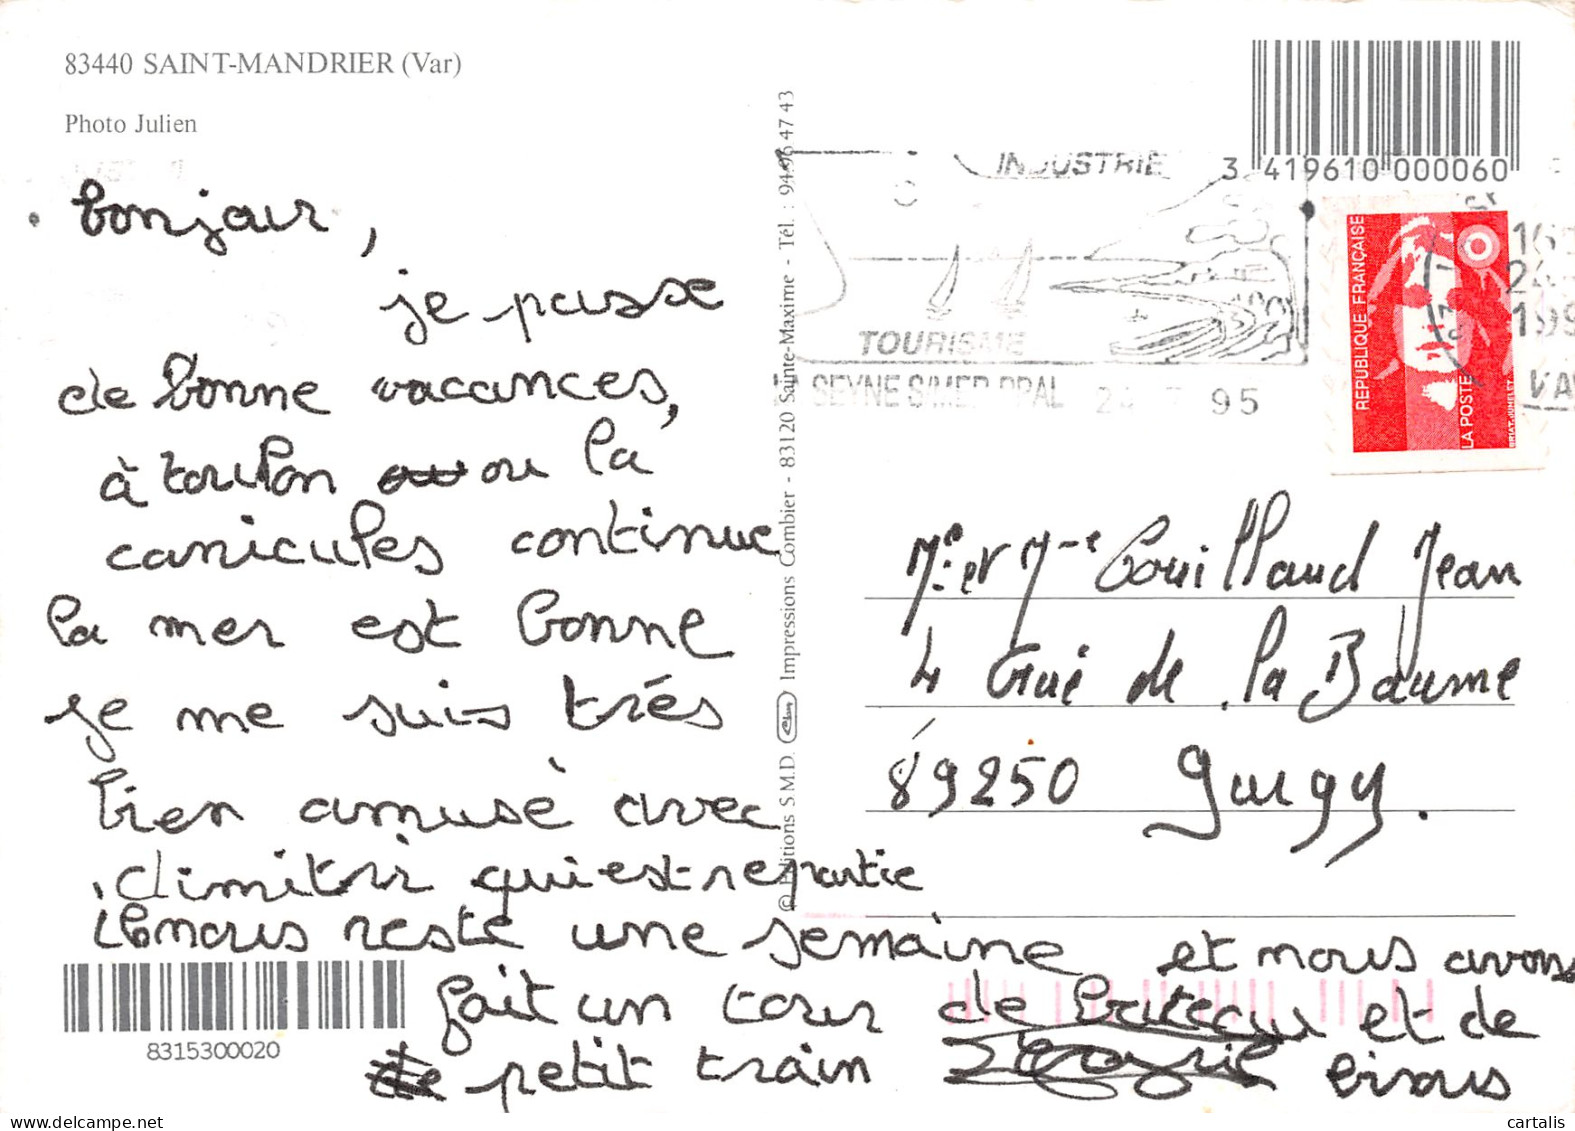 83440 SAINT-MANDRIER (Var)
Photo Julien
bonjour,
je passe
de bonne vacances,
à toulon ou la
canicules continue
la mer est bonne
je me suis trés
bien amusé avec
dimitri qui est repartie
il nous reste une semaine et nous avons
fait un tour de bateau et de
petit train bisous
© Editions S.M.D. Impressions Combier - 83120 Sainte-Maxime - Tél. : 94 96 47 43
INDUSTRIE
TOURISME
SEYNE S/MER PPAL
95
3 419610 000060
REPUBLIQUE FRANÇAISE
LA POSTE
Mr et Mme Couillaud Jean
4 rue de la Baume
89250 Gurgy.
8315300020
cartalis